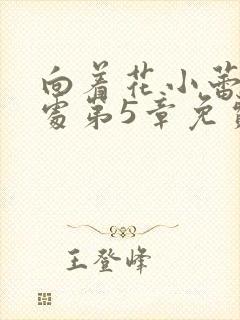 向着花小蕾
处第5章免
王登峰